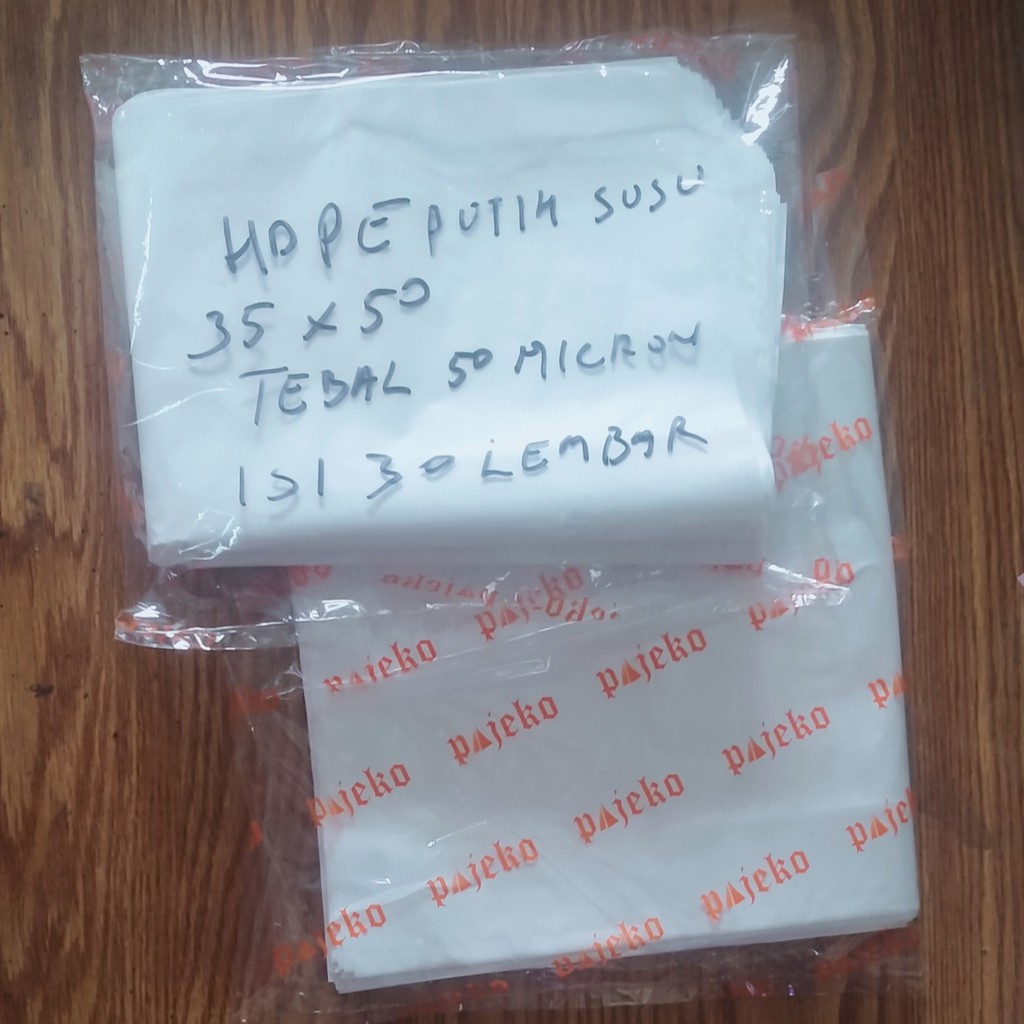 HDPE PUTIH SUSU
35 x 50
TEBAL 50 MICRON
ISI 30 LEMBAR
pajeko
pajeko
pajeko
pajeko
pajeko
pajeko
pajeko
pajeko
pajeko
pajeko
pajeko
pajeko
pajeko